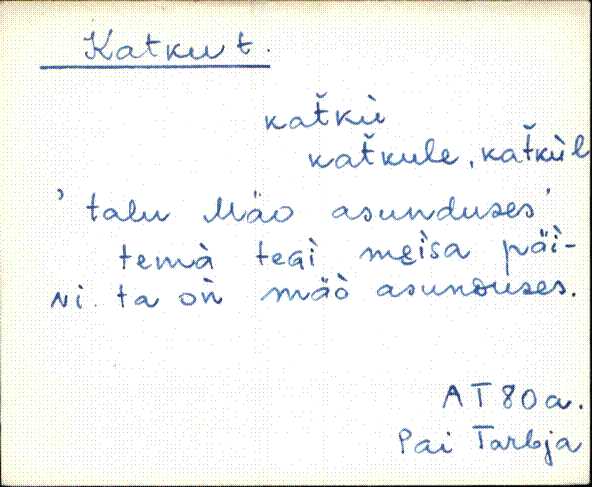 Katku t.
kat̆kù
kat̆kule, kat̆kùl
'talu Mäo asunduses'
temà teɢì meìsa päì-
ɴi. ta oǹ mäò asunᴅuses.
AT80a.
Pai Tarbja